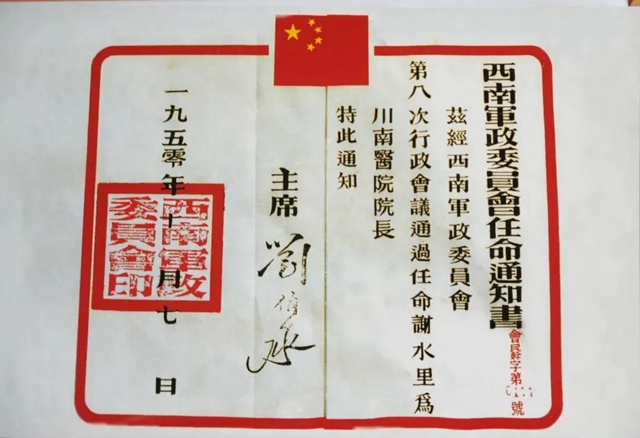 西南軍政委員會任命通知書
會民幹字第 號
茲經西南軍政委員會
第八次行政會議通過任命謝水里為
川南醫院院長
特此通知
主席 劉伯承
一九五零年十一月七日
西南軍政
委員會印